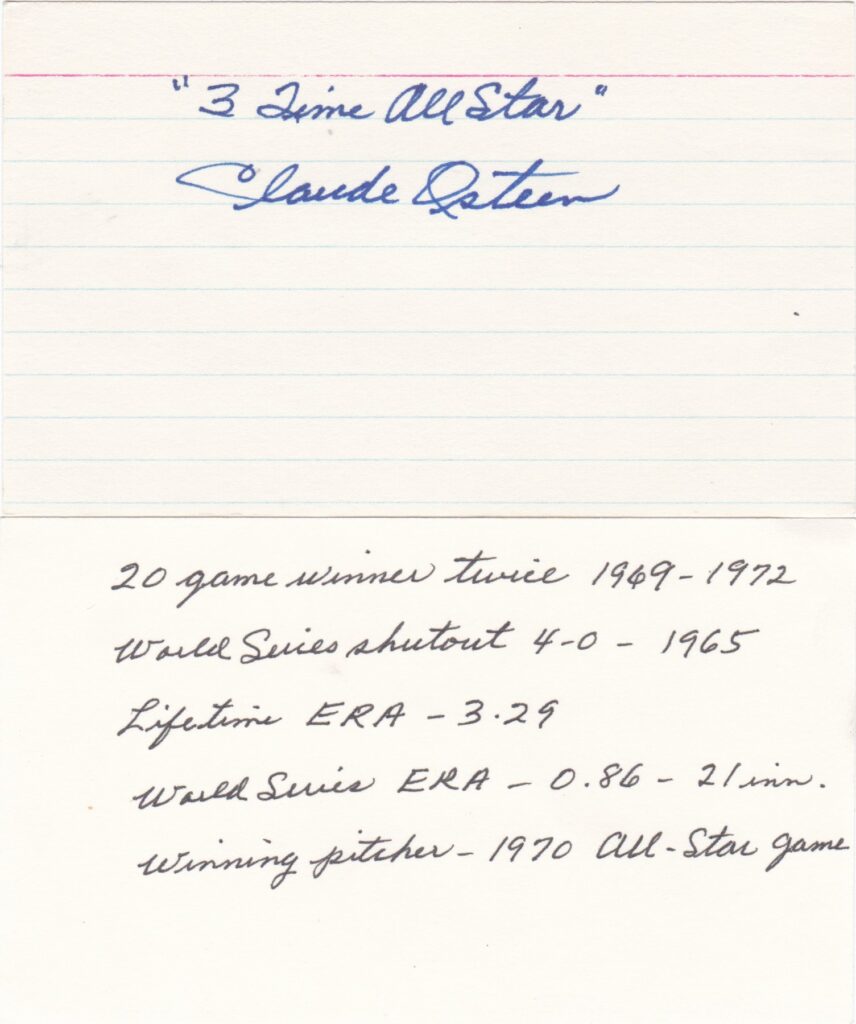 "3 Time All Star"
Claude Osteen
20 game winner twice 1969-1972
World Series shutout 4-0 - 1965
Lifetime ERA - 3.29
World Series ERA - 0.86 - 21 inn.
Winning pitcher - 1970 All-Star game